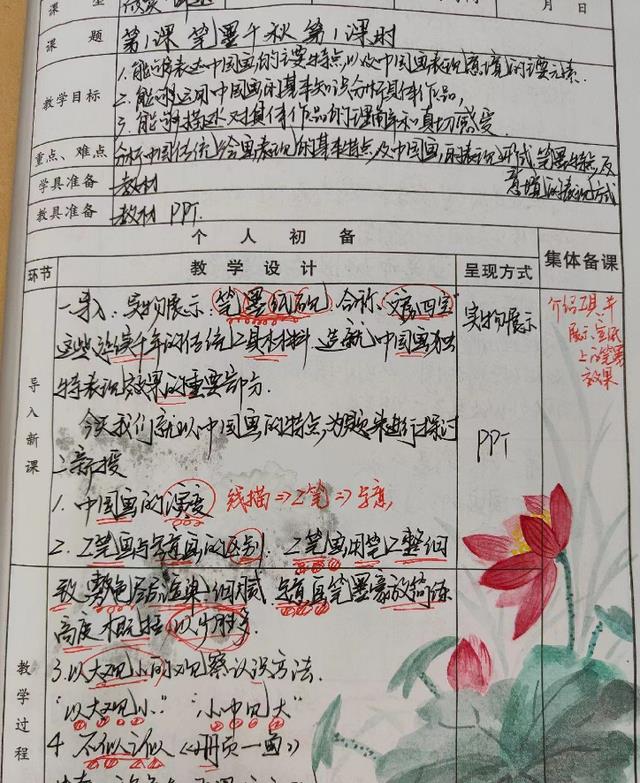 课 型
月 日
课 题 第1课 笔墨千秋 第1课时
教学目标 1. 能够表达中国画的主要特点,以及中国画表现意境的主要元素.
2. 能够运用中国画的基本知识分析具体作品,
3. 能够描述对具体作品的理解和真切感受.
重点、难点 分析中国传统绘画表现的基本特点及中国画的表现形式,笔墨特点及
意境的表现方式
学具准备 教材
教具准备 教材 PPT.
个人初备
集体备课
环节 教学设计 呈现方式
导入新课
一.导入:实物展示:笔墨纸砚 合称“文房四宝”
实物展示
介绍工具,并
展示宣纸
上的笔墨
效果
这些延续千年的传统工具材料.造就中国画独
特表现效果的重要部分.
今天我们就以中国画的特点,为题来进行探讨
PPT
二.新授
1. 中国画的演变 线描⇒工笔⇒写意
2. 工笔画与写意画的区别. 工笔画用笔工整细
致 敷色层层渲染 细腻 写意画笔墨豪放简练
高度概括 以少胜多.
教学过程
3.以大观小的观察认识方法.
“以大观小” “小中见大”
4. 不似之似《册页一图》